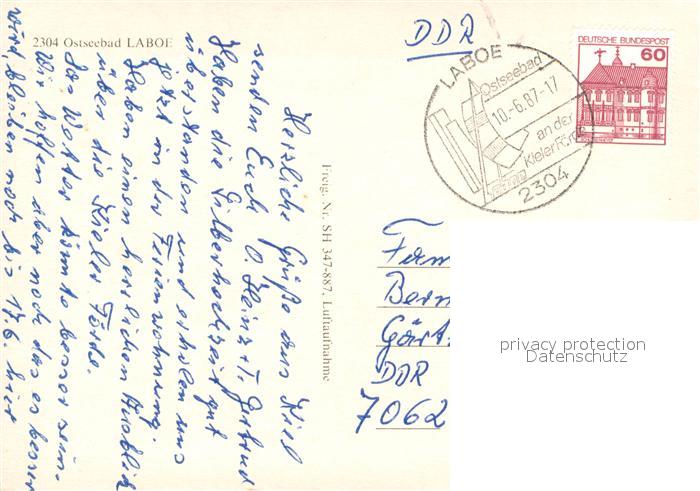 2304 Ostseebad LABOE
Herzliche Grüße aus Kiel
senden Euch O. Heinz + T. Gertrud
Haben die Silberhochzeit gut
überstanden und erholen uns
jetzt in der Ferienwohnung.
Haben einen herrlichen Ausblick
über die Kieler Förde.
Das Wetter könnte besser sein.
Wir hoffen aber noch das es besser
wird, bleiben noch bis 17.6. hier
Freig. Nr. SH 347-887, Luftaufnahme
DDR
LABOE
Ostseebad
10.-6.87-17
an der
Kieler Förde
2304
DEUTSCHE BUNDESPOST
60
Fam
Bern
Gart
DDR
7062
privacy protection
Datenschutz